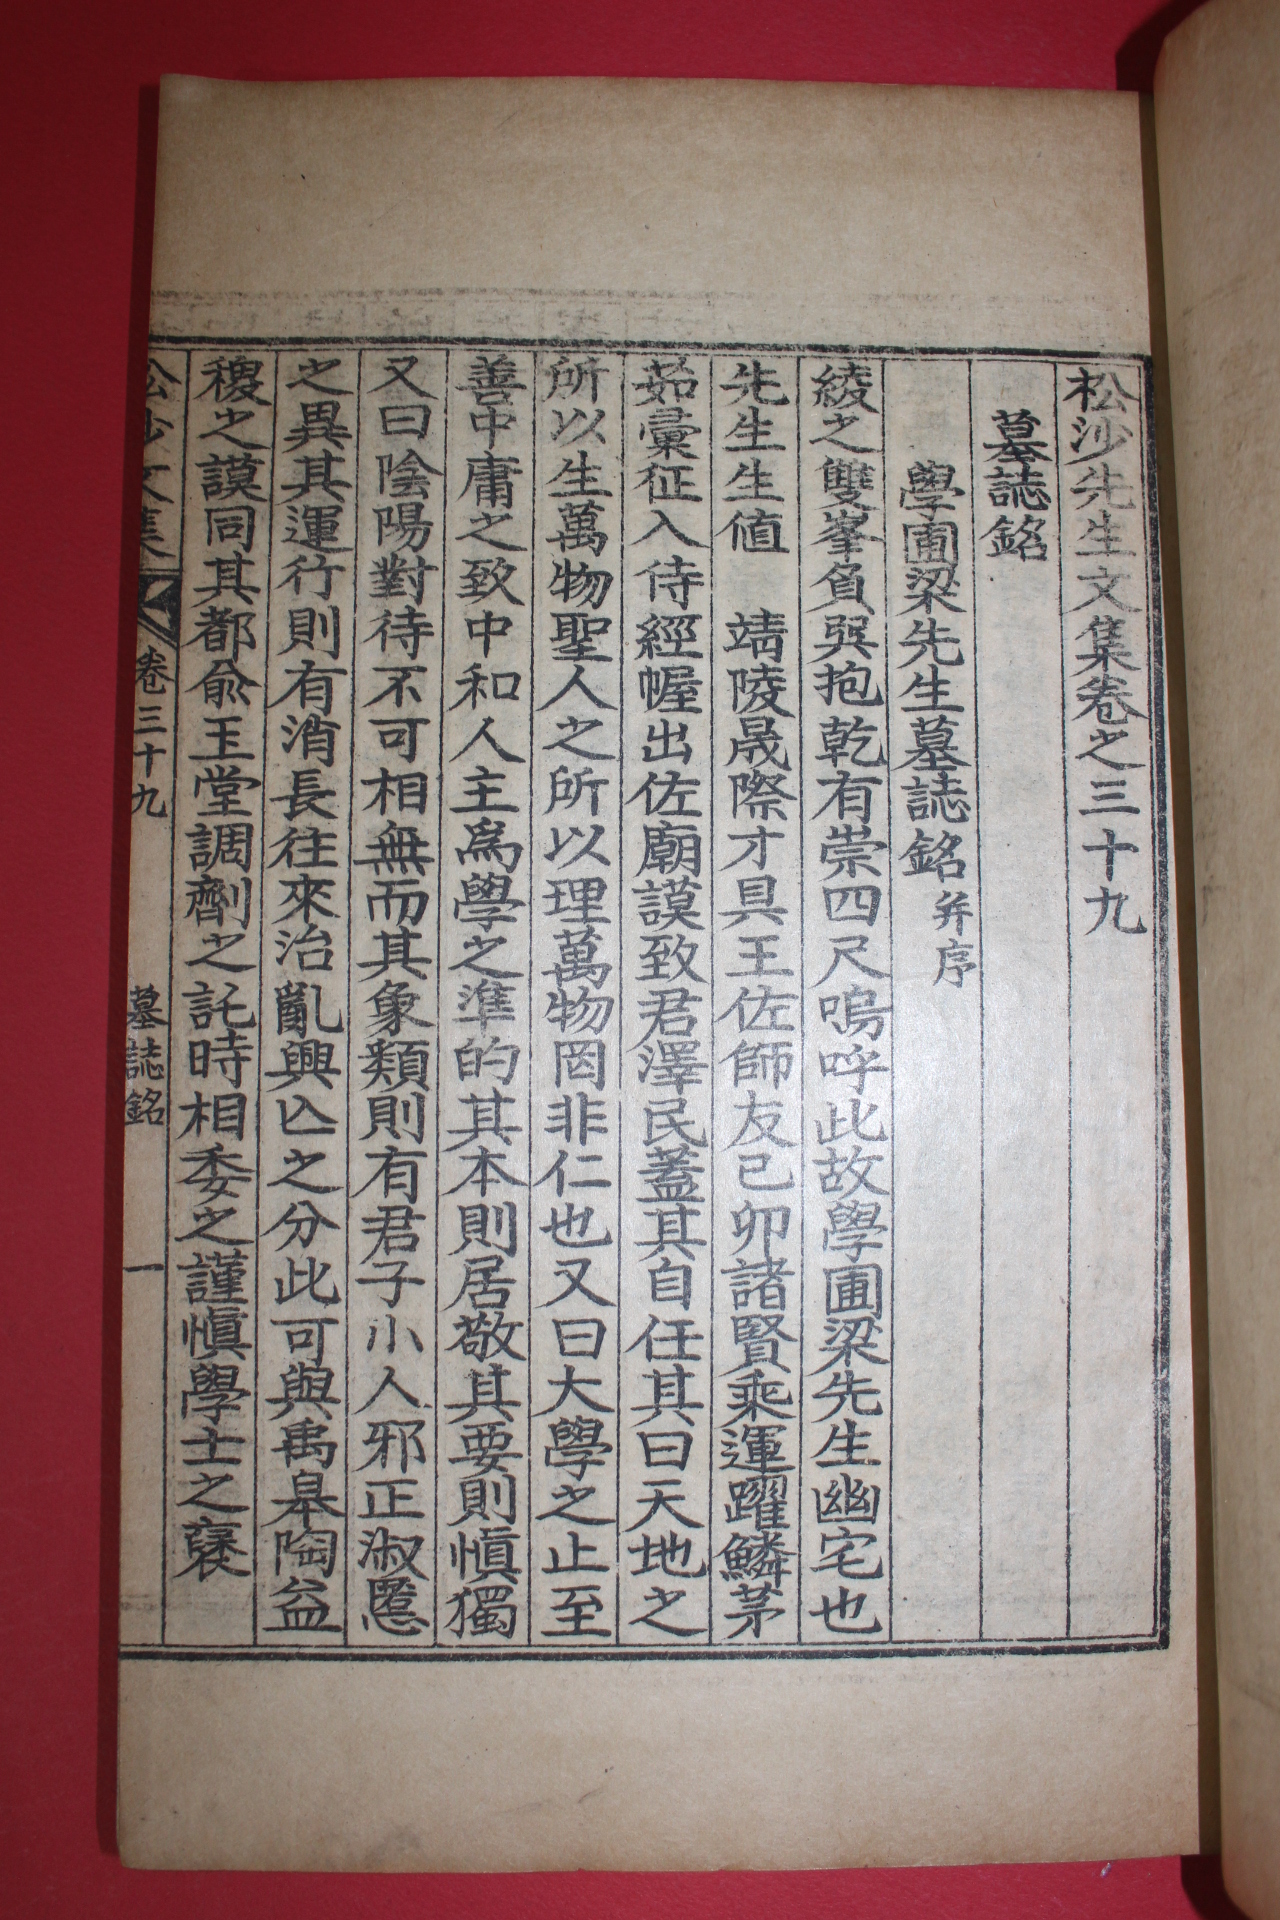 松沙先生文集卷之三十九
墓誌銘
學圃梁先生墓誌銘 幷序
綾之雙峯負巽抱乾有崇四尺嗚呼此故學圃梁先生幽宅也
先生生値 靖陵晟際才具王佐師友己卯諸賢乘運躍鱗茅
茹彙征入侍經幄出佐廟謨致君澤民蓋其自任其曰天地之
所以生萬物聖人之所以理萬物罔非仁也又曰大學之止至
善中庸之致中和人主爲學之準的其本則居敬其要則愼獨
又曰陰陽對待不可相無而其象類則有君子小人邪正淑慝
之異其運行則有消長往來治亂興亾之分此可與禹皋陶益
稷之謨同其都兪玉堂調劑之託時相委之謹愼學士之褎
松沙文集 卷三十九 墓誌銘 一